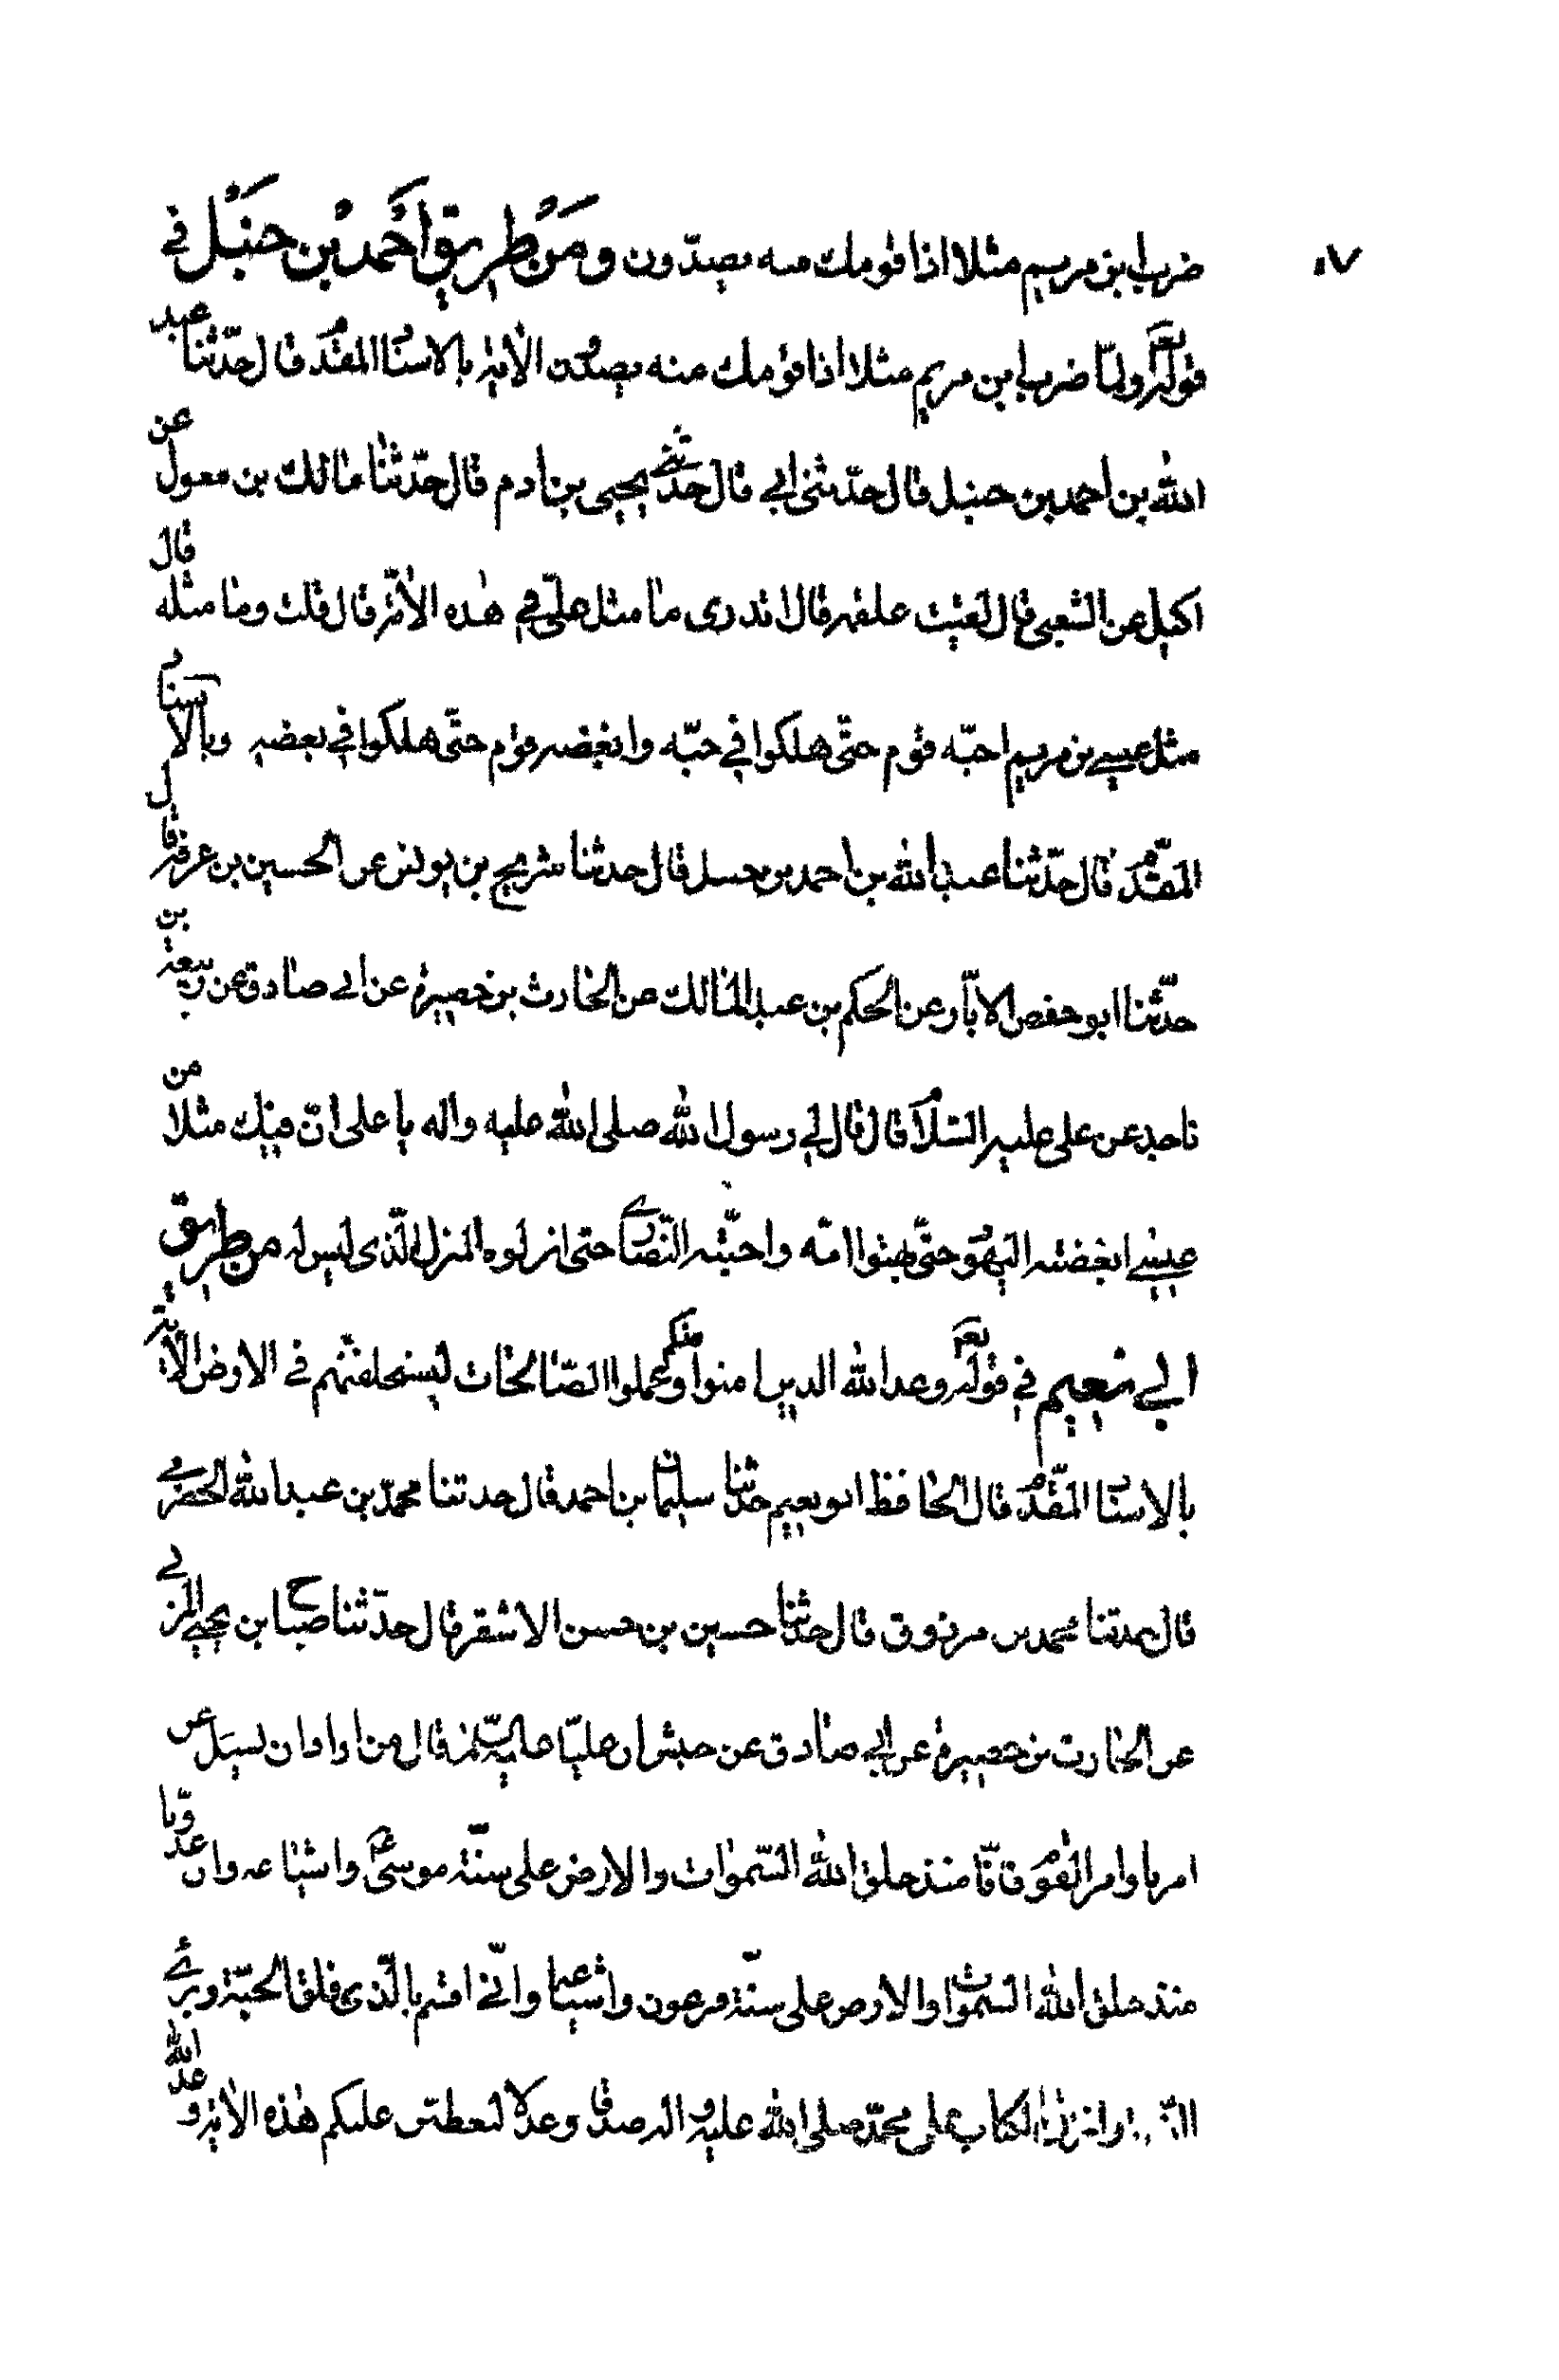 ٨٧
ضرب ابن مريم مثلا اذا قومك منه يصدّون ومن طريق احمد بن حنبل في
قوله تعالى ولمّا ضرب ابن مريم مثلا اذا قومك منه يصدون الاية بالاسناد المقدم قال حدّثنا عبد
الله بن احمد بن حنبل قال حدّثني ابي قال حدثني يحيى بن ادم قال حدّثنا مالك بن مغول عن
اكيل عن الشعبي قال لقيت علقمة قال اتدرى ما مثل عليّ في هذه الامّة قال قلت وما مثله قال
مثل عيسى بن مريم احبّه قوم حتّى هلكوا في حبّه وابغضه قوم حتّى هلكوا في بغضه وبالاسناد
المقدّم قال حدّثنا عبد الله بن احمد بن حنبل قال حدثنا شريح بن يونس عن الحسين بن عرفة قال
حدّثنا ابو حفص الابّار عن الحكم بن عبد المالك عن الحارث بن خصيرة عن ابي صادق عن ربيعة بن
ناجد عن على عليه السلام قال قال لي رسول الله صلى الله عليه واله يا على انّ فيك مثلا من
عيسى ابغضته اليهود حتّى بهتوا امّه واحبّته النّصارى حتى انزلوه المنزل الّذى ليس له من طريق
ابي نعيم في قوله تعالى وعد الله الذين امنوا منكم وعملوا الصّالحات ليستخلفنّهم في الارض الاية
بالاسناد المقدّم قال الحافظ ابو نعيم حدّثنا سليمان بن احمد قال حدثنا محمّد بن عبد الله الحضرمي
قال حدثنا محمد بن مرزوق قال حدّثنا حسين بن حسن الاشقر قال حدّثنا صباح بن يحيى المزني
عن الحارث بن حصيرة عن ابي صادق عن حبش ان عليّا عليه السّلم قال من اراد ان يسئل عن
امرنا وامر القوم فانّا منذ خلق الله السّموات والارض على سنّة موسى واشياعه وان عدوّنا
منذ خلق الله السموات والارض على سنّة فرعون واشياعه وانّي اقسم بالّذى فلق الحبّة وبرئ
وانزل الكتاب على محمّد صلى الله عليه واله صدقا وعدلا ليعطفنّ عليكم هذه الاية وعد الله